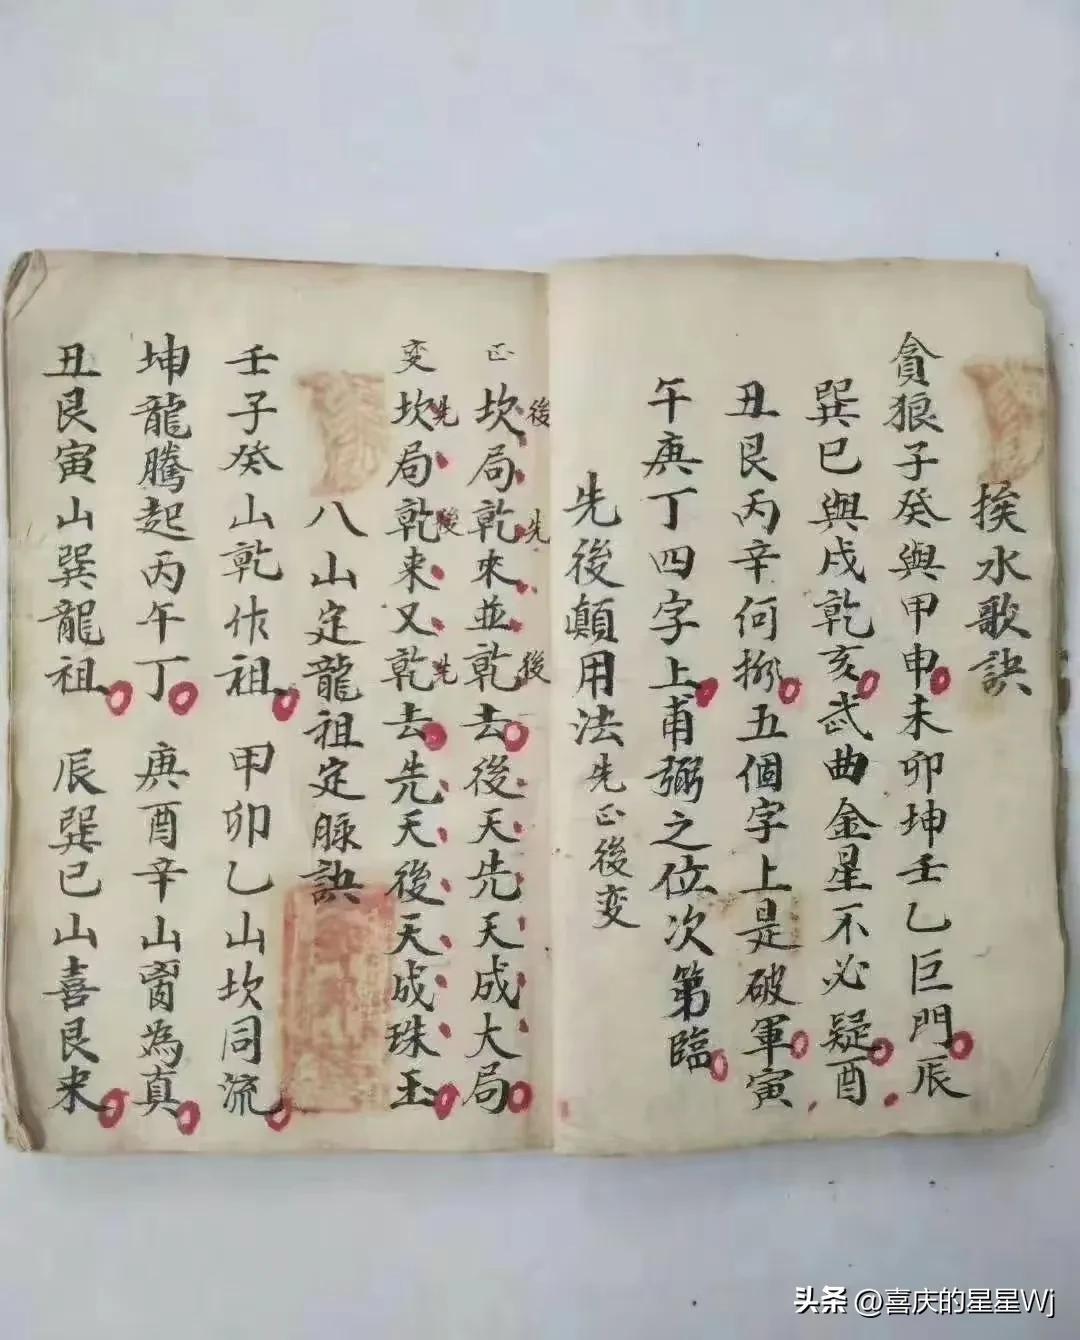 挨水歌訣
貪狼子癸與甲申未卯坤壬乙巨門辰
巽巳與戌乾亥武曲金星不必疑酉
丑艮丙辛何撥五個字上是破軍寅
午庚丁四字上甫弼之位次第臨
先後顛用法先正後変
正坎局乾來並乾去後天先天成大局
後先後
変坎局乾来又乾去先天後天成珠玉
先後先
八山定龍祖定脉訣
壬子癸山乾作祖甲卯乙山坎同流
坤龍騰起丙午丁庚酉辛山為真
丑艮寅山巽龍祖辰巽巳山喜艮来
头条 @喜庆的星星Wj